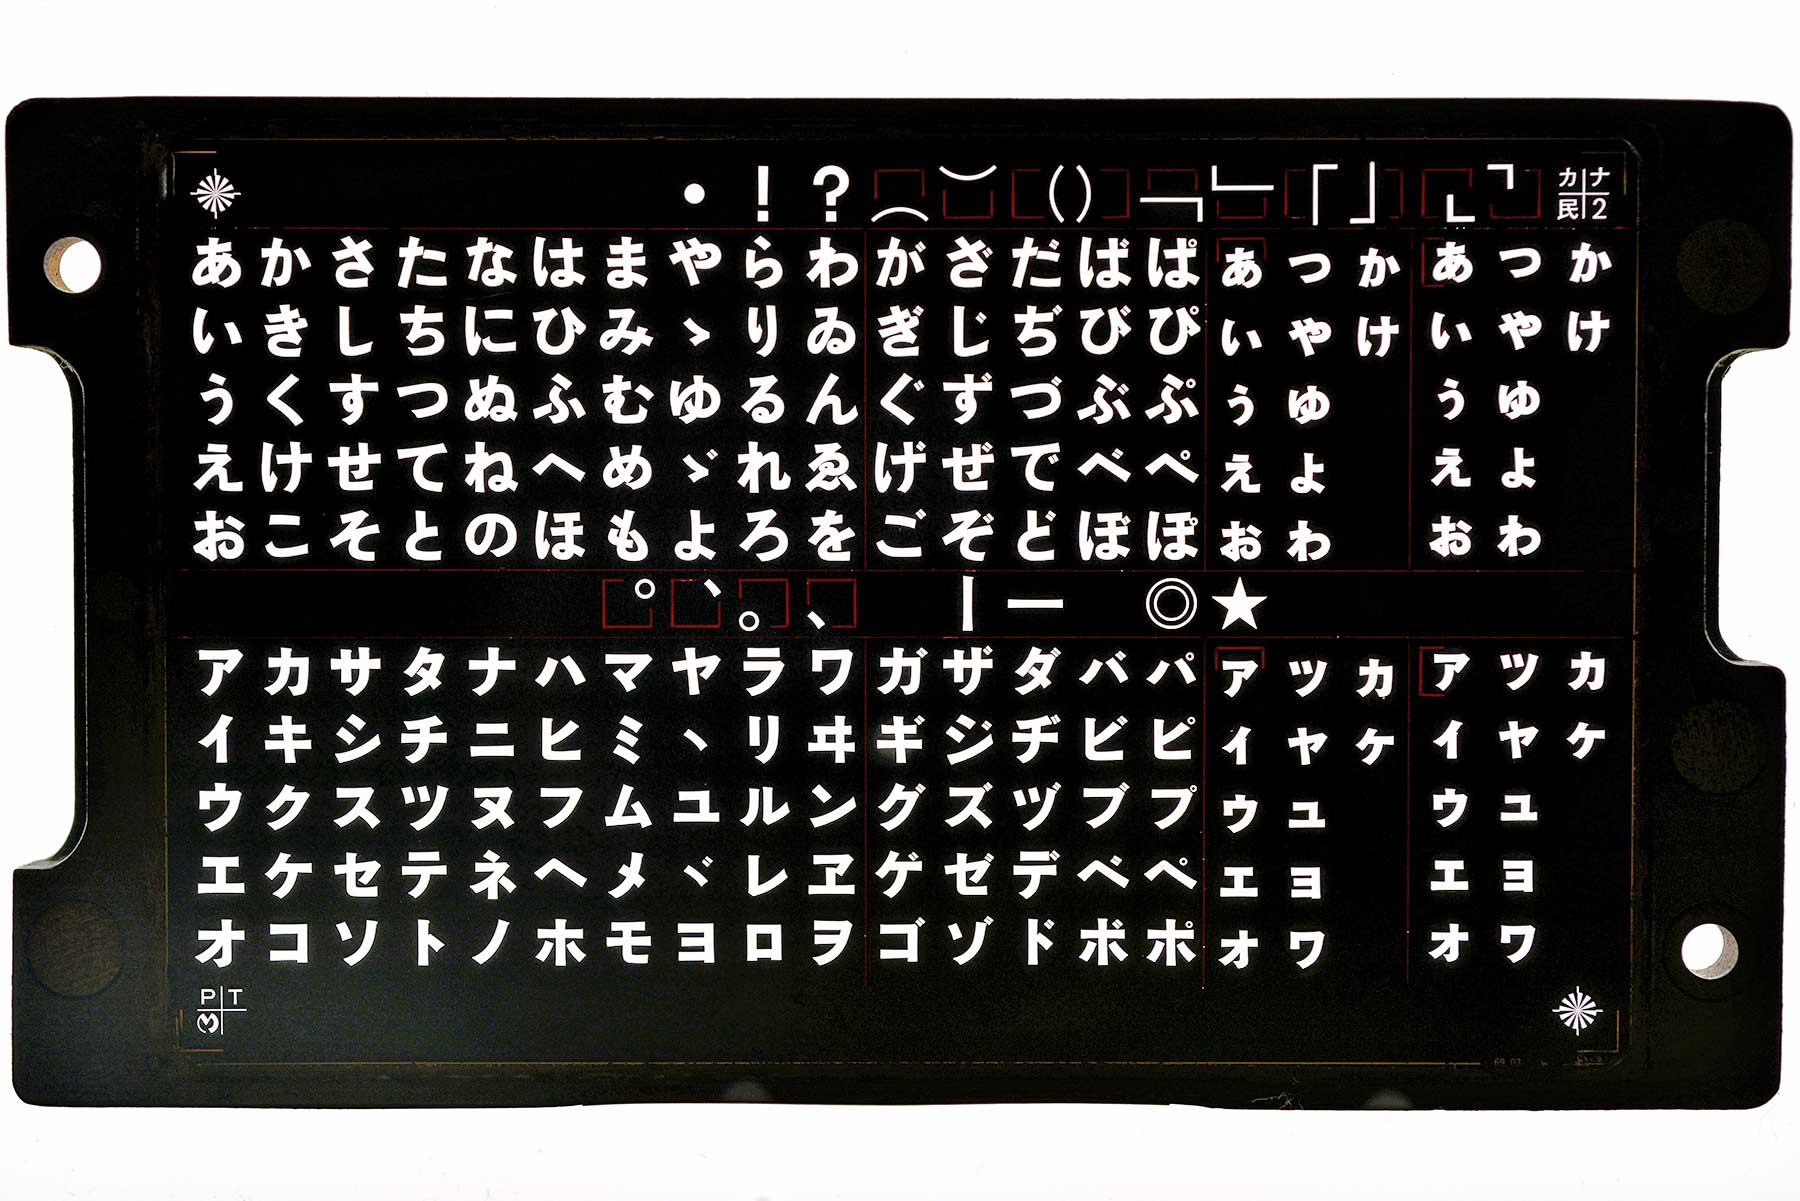 ・ ! ? ︵ ︶ () ﹁ ﹂ 「 」 ﹂ ﹁ カナ民2
あかさたなはまやらわがざだばぱぁっかあつか
いきしちにひみゝりゐぎじぢびぴぃゃけいやけ
うくすつぬふむゆるんぐずづぶぷぅゅうゆ
えけせてねへめゞれゑげぜでべぺぇょえよ
おこそとのほもよろをごぞどぼぽぉゎおわ
。 、 。 、 | ー ◎ ★
アカサタナハマヤラワガザダバパァッヵアツカ
イキシチニヒミヽリヰギジヂビピィャヶイヤケ
ウクスツヌフムユルングズヅブプゥュウユ
エケセテネヘメヾレヱゲゼデベペェョエヨ
オコソトノホモヨロヲゴゾドボポォヮオワ
PT